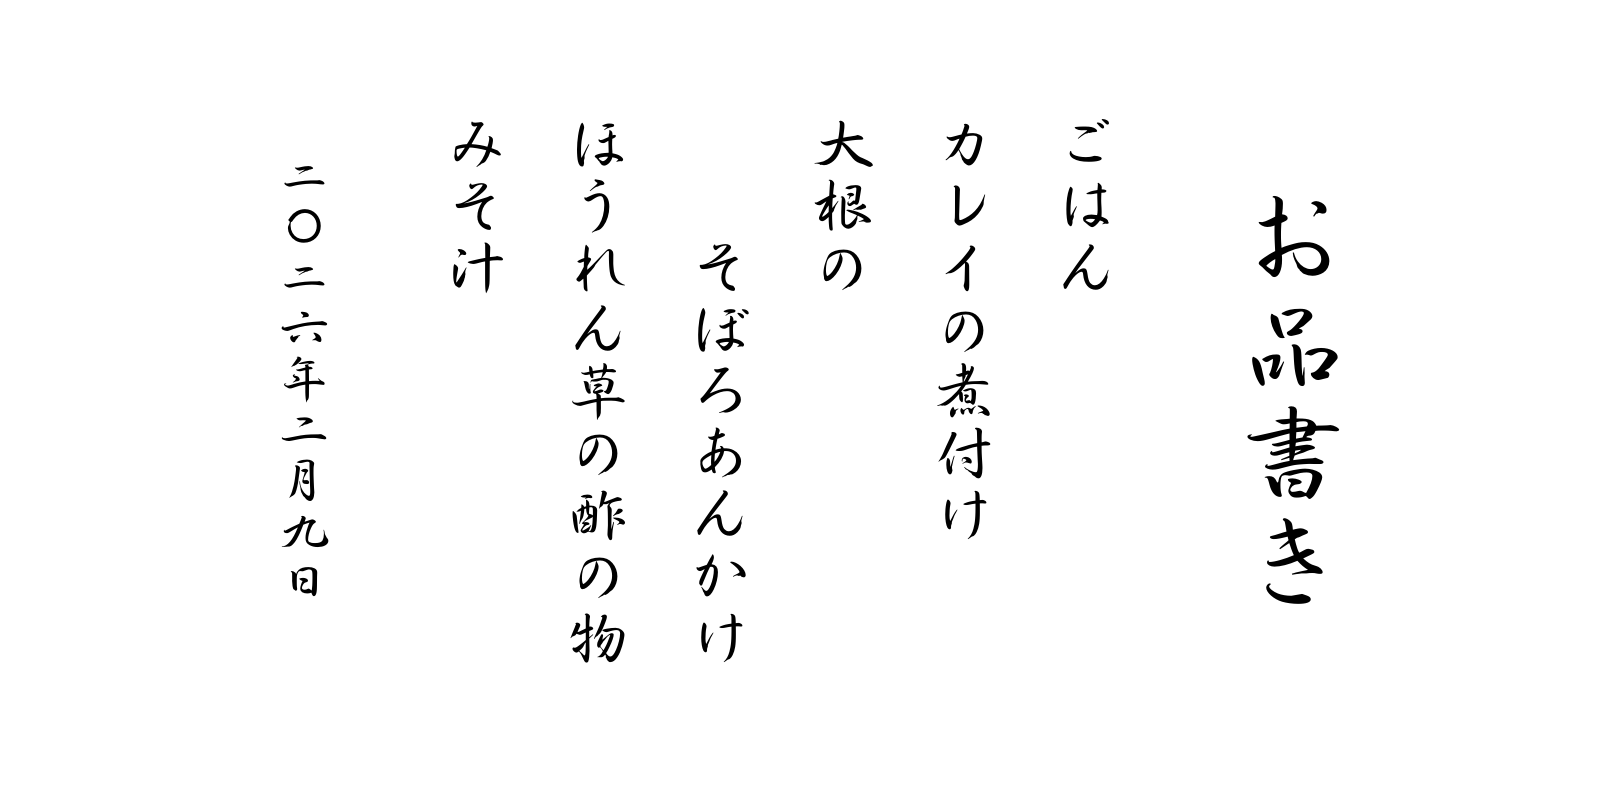 お品書き
ごはん
カレイの煮付け
大根の
そぼろあんかけ
ほうれん草の酢の物
みそ汁
二〇二六年二月九日